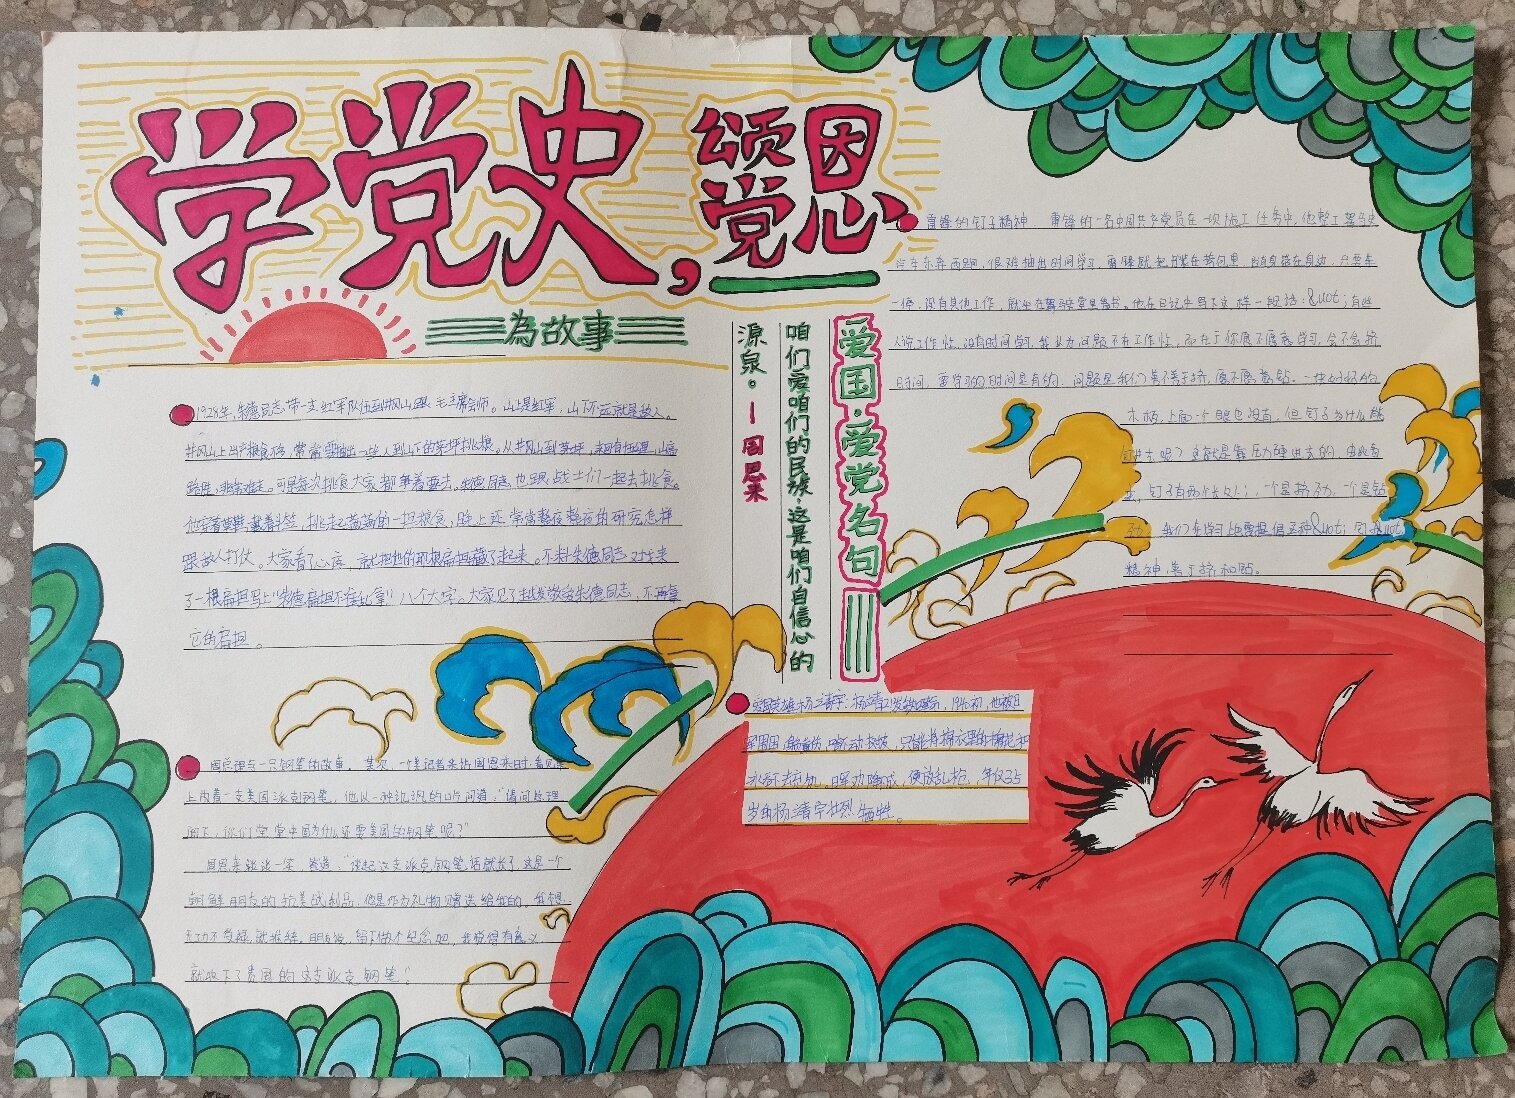 学党史，
颂党恩
為故事
1928年，朱德同志带一支红军队伍到井冈山跟毛主席会师。山上是红军，山下不远就是敌人。
井冈山上出产粮食不多，常常要抽出一些人到山下的茅坪挑粮。从井冈山到茅坪，来回有五六十里，山高
路陡，非常难走。可是每次挑食大家都争着要去。朱德同志也跟战士们一起去挑食。
他穿着草鞋，戴着斗笠，挑起满满的一担粮食，晚上还常常整夜整夜的研究怎样
跟敌人打仗。大家看了心疼，就把他的那根扁担藏了起来。不料朱德同志又
了一根扁担写上“朱德扁担不准乱拿”八个大字。大家见了越发敬爱朱德同志，不再拿
它的扁担。
周总理与一只钢笔的故事。 其次，一位记者采访周恩来时，看见桌
上内着一支美国派克钢笔，他以一种讥讽的口吻问道：“请问总理
阁下，你们堂堂中国为什么还要美国的钢笔呢？”
周恩来淡淡一笑，答道：“谈起这支派克钢笔话就长了，这是一个
朝鲜朋友的抗美战利品，他是作为礼物赠送给我的，我想
无功不受禄，就推辞，朋友说，留下做个纪念吧，我觉得有意义
就收下了贵国的这支派克钢笔。”
爱国·爱党名句
咱们爱咱们的民族，这是咱们自信心的
源泉。—周恩来
雷锋的钉子精神 雷锋的一名中国共产党员在一次施工任务中，他整工驾驶
汽车东奔西跑，很难抽出时间学习，雷锋就把书装在挎包里，随身带在身边，只要车
一停，没有其他工作，就坐在驾驶室里看书。他在日记中写下这样一段话：&uot；有些
人说工作忙、没有时间学习，我认为问题不在工作忙，而在于你愿不愿意学习，会不会挤
时间，要学习的时间是有的，问题是我们善不善于挤，愿不愿意钻。一块好好的
木板，上面一个眼也没有，但钉子为什么能
钉进去呢？这就是靠压力硬曲去的，由此看
来，钉子有两个长处：一个是挤劲，一个是钻
劲，我们在学习上也要提倡这种&uot；钉&uot
精神，善于挤和钻。
爱国英雄杨靖宇：杨靖宇 ，1940初，他被日
军围困， 负伤 ，只能 棉衣里的棉花和
冰 ，日军 ，便放乱枪，年仅35
岁的杨靖宇壮烈牺牲。